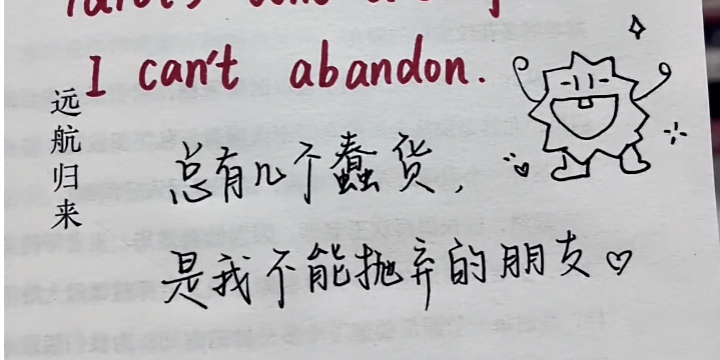 I can't abandon.
远航归来
总有几个蠢货，
是我不能抛弃的朋友♡